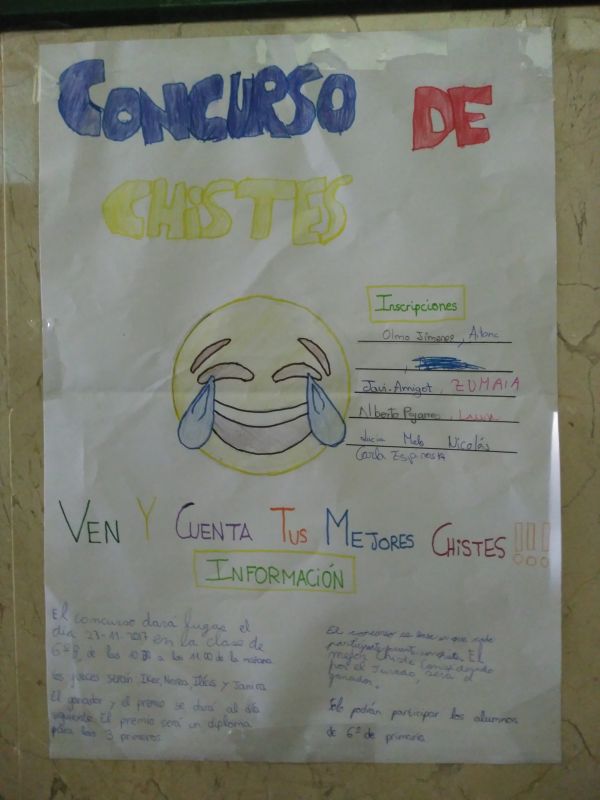 CONCURSO DE
CHISTES
Inscripciones
Olmo Jimenez, Aitana
,
Javi-Amigot, ZUMAIA
Alberto, Laura
Lucia Melo Nicolás
Carla Espinosa
VEN Y CUENTA TUS MEJORES CHISTES!!!
INFORMACIÓN
El concurso dara lugar el
día 23-11-2017 en la clase de
6ºB de las 10:30 a las 11:00 de la mañana
los jueces serán Iker, Nerea, y
El ganador y el premio se dirá al día
siguiente. El premio será un diploma
para los 3 primeros.
El concurso se basa en que cada
participante un chiste. El
mejor chiste
por el jurado, será el
ganador.
podrán participar los alumnos
de 6º de primaria